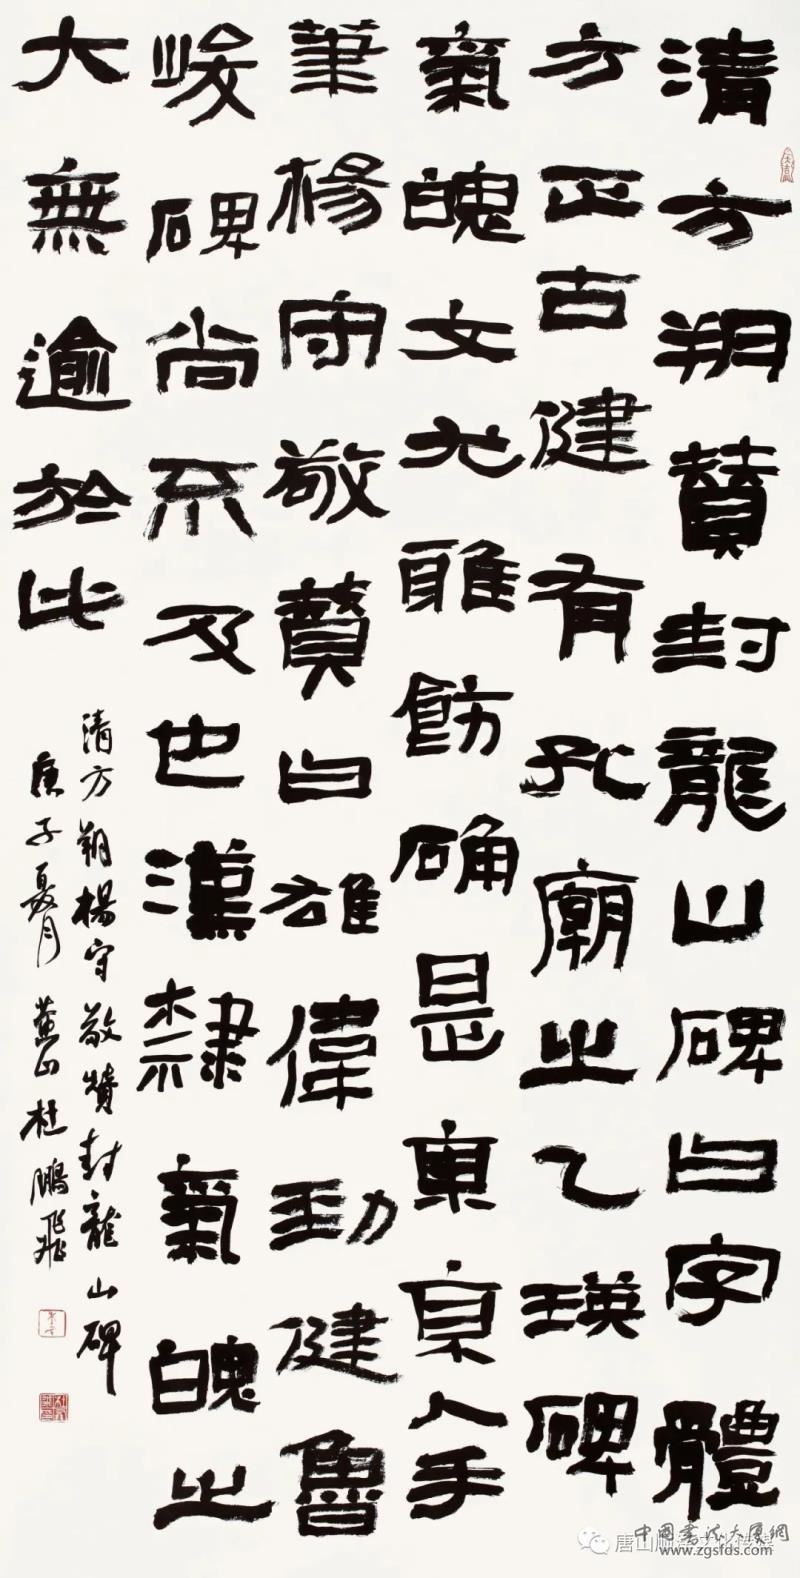 清方朔贊封龍山碑曰字體
方正古健有孔廟之乙瑛碑
氣魄文尤雅飭确是東京人手
筆楊守敬贊曰雄偉勁健魯
峻碑尚不及也漢隸氣魄之
大無逾於此
清方朔楊守敬贊封龍山碑
庚子夏月燕山杜鵬飛
中國書法大廈網
唐山文化传媒
www.zgsfds.com